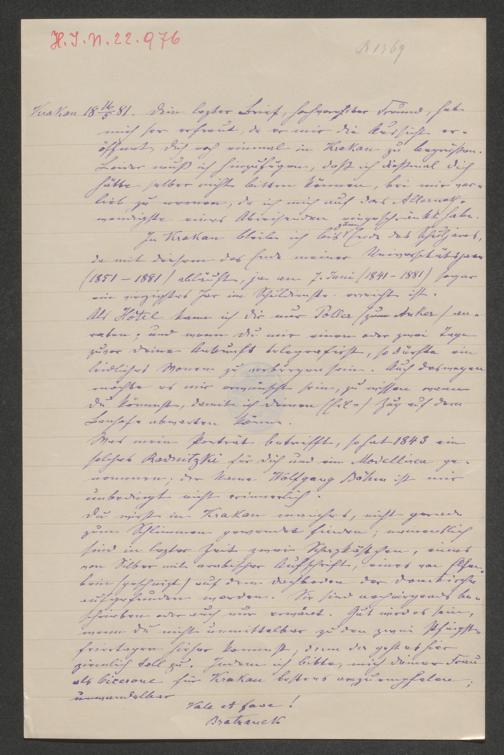 H.I.N. 22.976
Krakau 18 16/5 81. Dein lezter Brief, hochverehrter Freund, hat
mich ser erfreut, da er mir die Aussicht er-
öffnet, Dich noch einmal in Krakau zu begrüssen.
Leider muß ich hinzufügen, daß ich dießmal Dich
hätte selber nicht bitten können, bei mir vor-
lieb zu nemen, da ich mich auf das Allernot-
wendigste eines Abreisenden eingeschränkt habe.
In Krakau bleibe ich biß zum Ende des Schuljares,
da mit diesem das Ende meiner Universitätsjare
(1851 – 1881) abläuft, ja am 7. Juni (1841–1881) sogar
ein vierzigstes Jar im Schuldienste erreicht ist.
Als Hôtel kann ich Dir nur Poller (zum Anker) an-
raten; und wenn Du mir einen oder zwei Tage
zuvor Deine Ankunft telegrafirst, so dürfte ein
leidliches Wonen zu verbürgen sein. Auch deswegen
möchte es mir erwünscht sein, zu wissen wann
Du kömmst, damit ich Deinen (Eil-) Zug auf dem
Banhofe abwarten könne.
Was mein Porträt betrifft, so hat 1843 ein
solches Radnitzki für Dich und ein Modellirer ge-
nommen; der Name Wolfgang Böhm ist mir
unbedingt nicht erinnerlich.
Du wirst in Krakau manches, nicht gerade
zum Schlimmen gewendet finden; namentlich
sind in lezter Zeit zwei Schazkästchen, eines
von Silber mit arabischer Aufschrift, eines von Elfen-
bein (geschnizt) auf dem Dachboden der Domkirche
aufgefunden worden. Sie sind noch nirgends be-
schrieben oder auch nur erwänt. Gut wird es sein,
wenn Du nicht unmittelbar zu den zwei Pfingst-
feiertagen hieher kommst, denn da geht es hier
ziemlich toll zu. Indem ich bitte, mich Deiner Frau
als Cicerone für Krakau bestens anzuempfelen;
unwandelbar
Vale et fave!
Bratranek